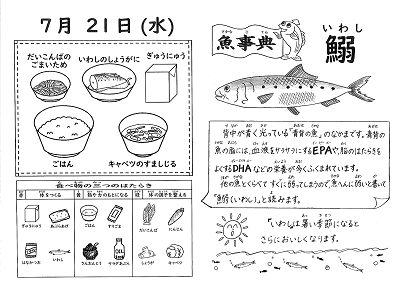 7月 21日(水)
だいこんばの
ごまいため
いわしのしょうがに
ぎゅうにゅう
ごはん
キャベツのすましじる
食べ物の三つのはたらき
赤 体をつくる
黄 熱や力のもとになる
緑 体の調子を整える
ぎゅうにゅう
あぶらあげ
ごはん
すりごま
だいこんば
にんじん
はなかつお
いわし
さんおんとう
サラダあぶら
しょうが
キャベツ
さかな じ てん
魚事典
いわし
鰯
背中が青く光っている「青背の魚」のなかまです。青背の
魚の脂には、血液をサラサラにするEPAや脳のはたらきを
よくするDHAなどの栄養が多くふくまれています。
他の魚とくらべてすぐに弱ってしまうので「魚へんに弱い」と書いて
「鰯(いわし)」と読みます。
「いわしは暑い季節になると
さらにおいしくなります。